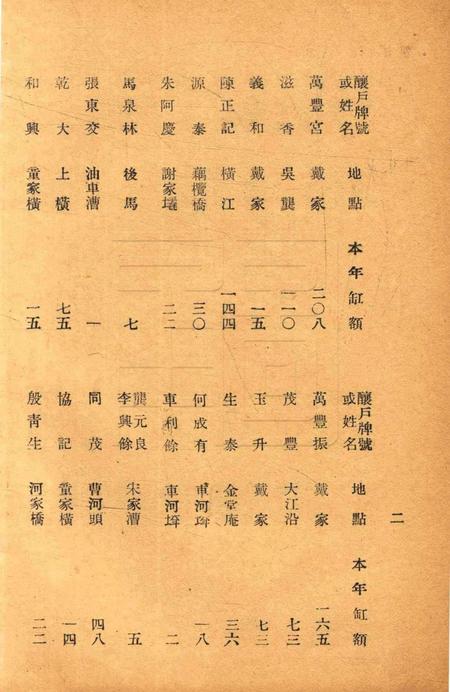 釀戶牌號或姓名 地點 本年缸額
萬豐宮 戴家 二〇八
滋香 吳龔 一一〇
義和 戴家 一五
陳正記 橫江 一四四
源泰 藕欖橋 三〇
朱阿慶 謝家㙮 二二
馬泉林 後馬 七
張東交 油車漕 一
乾大 上橫 七五
和興 童家橫 一五
釀戶牌號或姓名 地點 本年缸額
萬豐振 戴家 一六五
茂豐 大江沿 七三
玉升 戴家 七三
生泰 金堂庵 三六
何成有 車河 一八
車利餘 車河 二
龔元良 李興餘 宋家漕 五
同茂 曹河頭 四八
協記 童家橫 一四
殷靑生 河家橋 二二
二